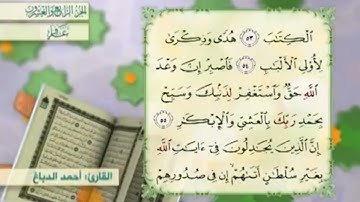 الجزء الرابع والعشرون
غافر
ٱلْكِتَٰبَ ٥٣ هُدًى وَذِكْرَىٰ
لِأُو۟لِى ٱلْأَلْبَٰبِ ٥٤ فَٱصْبِرْ إِنَّ وَعْدَ
ٱللَّهِ حَقٌّ وَٱسْتَغْفِرْ لِذَنۢبِكَ وَسَبِّحْ
بِحَمْدِ رَبِّكَ بِٱلْعَشِىِّ وَٱلْإِبْكَٰرِ ٥٥
إِنَّ ٱلَّذِينَ يُجَٰدِلُونَ فِىٓ ءَايَٰتِ ٱللَّهِ
بِغَيْرِ سُلْطَٰنٍ أَتَىٰهُمْ إِن فِى صُدُورِهِمْ
القارئ: أحمد الدباغ